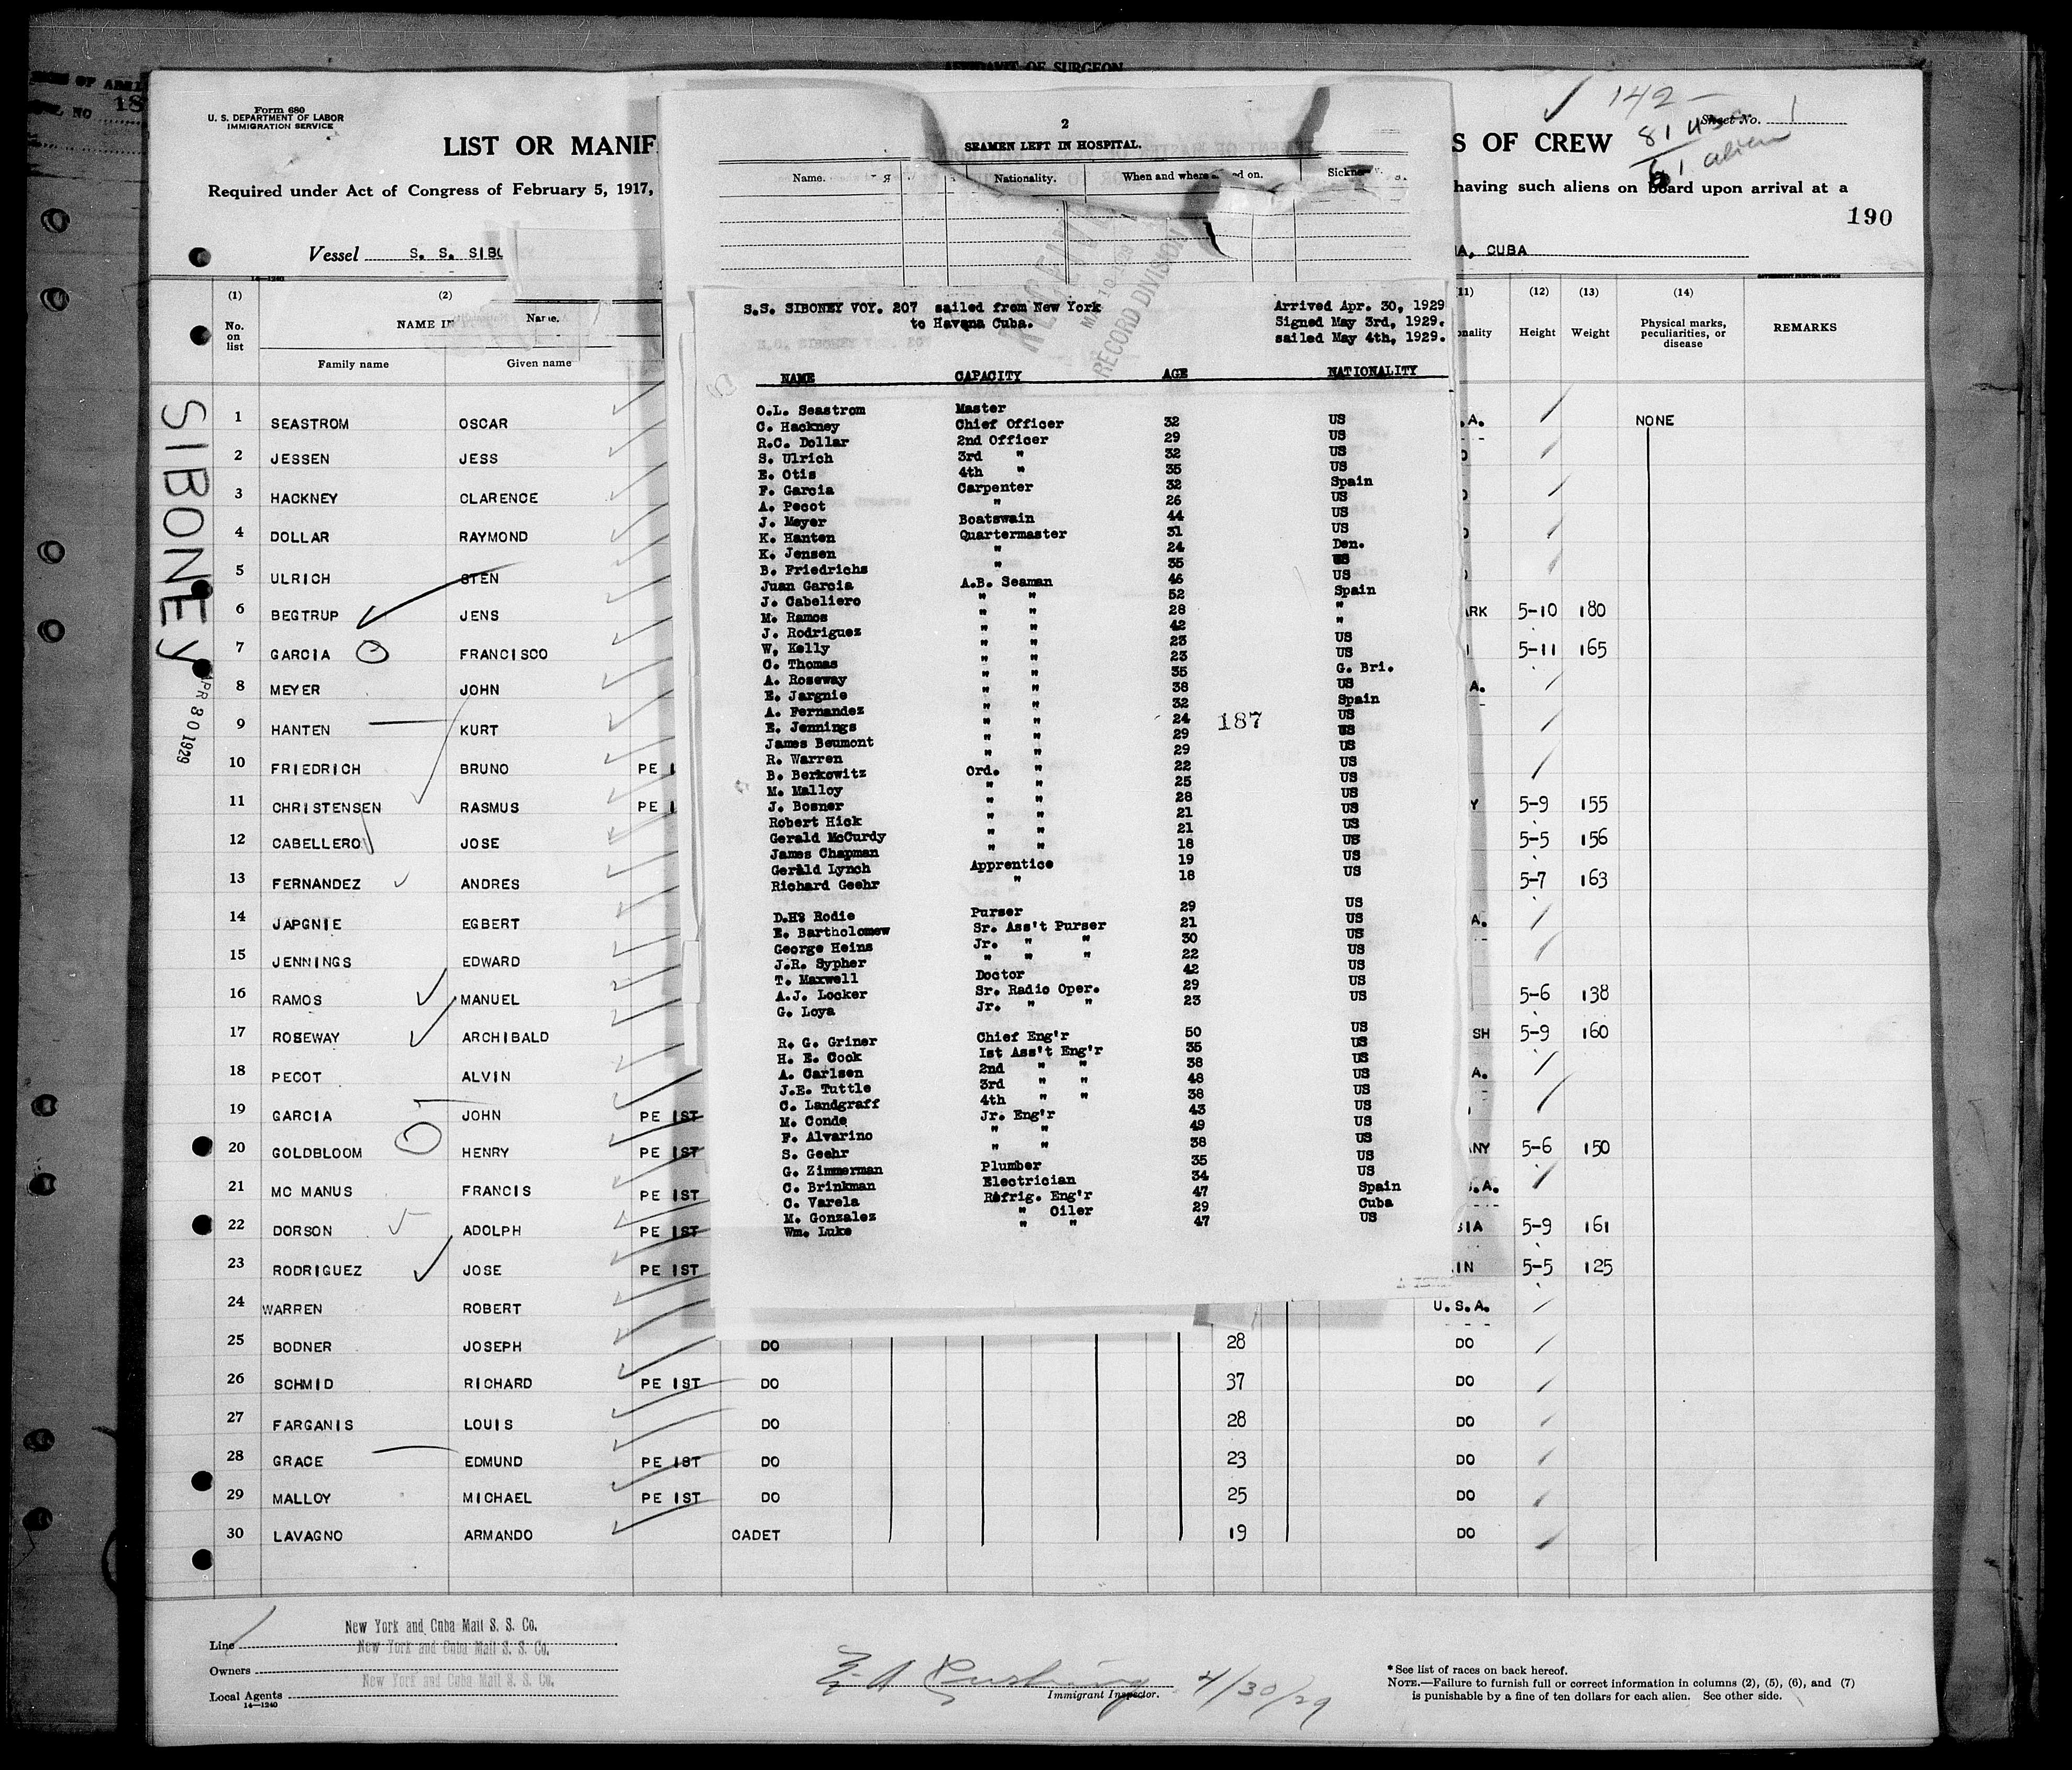 AFFIDAVIT OF SURGEON
Form 680
U. S. DEPARTMENT OF LABOR
IMMIGRATION SERVICE
LIST OR MANIF
S OF CREW
142 –
81 US
61 alien
Sheet No. 1
Required under Act of Congress of February 5, 1917,
having such aliens on board upon arrival at a
190
Vessel S. S. SIBO
A, CUBA
SIBONEY
APR 30 1929
(1) (2) (11) (12) (13) (14)
No. on list
NAME IN
Family name Given name
Name.
Height Weight Physical marks, peculiarities, or disease REMARKS
1 SEASTROM OSCAR .A. NONE
2 JESSEN JESS
3 HACKNEY CLARENCE
4 DOLLAR RAYMOND
5 ULRICH STEN
6 BEGTRUP JENS ARK 5-10 180
7 GARCIA FRANCISCO 5-11 165
8 MEYER JOHN A.
9 HANTEN KURT
10 FRIEDRICH BRUNO PE I
11 CHRISTENSEN RASMUS PE I Y 5-9 155
12 CABELLERO JOSE 5-5 156
13 FERNANDEZ ANDRES 5-7 163
14 JAPGNIE EGBERT A.
15 JENNINGS EDWARD
16 RAMOS MANUEL 5-6 138
17 ROSEWAY ARCHIBALD SH 5-9 160
18 PECOT ALVIN A.
19 GARCIA JOHN PE IST
20 GOLDBLOOM HENRY PE IST ANY 5-6 150
21 MC MANUS FRANCIS PE IST .A.
22 DORSON ADOLPH PE IST SIA 5-9 161
23 RODRIGUEZ JOSE PE IST IN 5-5 125
24 WARREN ROBERT U.S.A.
25 BODNER JOSEPH DO 28 DO
26 SCHMID RICHARD PE IST DO 37 DO
27 FARGANIS LOUIS DO 28 DO
28 GRACE EDMUND PE IST DO 23 DO
29 MALLOY MICHAEL PE IST DO 25 DO
30 LAVAGNO ARMANDO CADET 19 DO
2
SEAMEN LEFT IN HOSPITAL.
Name. Nationality. When and where
RECORD DIVISION
S.S. SIBONEY VOY. 207 sailed from New York
to Havana Cuba.
Arrived Apr. 30, 1929
Signed May 3rd, 1929.
sailed May 4th, 1929.
NAME CAPACITY AGE NATIONALITY
O.L. Seastrom Master
C. Hackney Chief Officer 32 US
R.C. Dollar 2nd Officer 29 US
S. Ulrich 3rd " 32 US
E. Otis 4th " 35 US
F. Garcia Carpenter 32 Spain
A. Pecot " 26 US
J. Meyer Boatswain 44 US
K. Hanten Quartermaster 31 US
K. Jensen " 24 Den.
B. Friedrichs " 35 US
Juan Garcia A.B. Seaman 46 US
J. Cabeliero " " 52 Spain
M. Ramos " " 28 "
J. Rodriguez " " 42 "
W. Kelly " " 23 US
C. Thomas " " 23 US
A. Roseway " " 35 G. Bri.
E. Jargnie " " 38 US
A. Fernandez " " 32 Spain
E. Jennings " " 24 US
James Beumont " " 29 US
R. Warren " " 29 US
B. Berkowitz Ord. " 22 US
M. Malloy " " 25 US
J. Bosner " " 28 US
Robert Hick " " 21 US
Gerald McCurdy " " 21 US
James Chapman " " 18 US
Gerald Lynch Apprentice 19 US
Richard Geehr " 18 US
187
D.H. Rodie Purser 29 US
E. Bartholomew Sr. Ass't Purser 21 US
George Heins Jr. " " 30 US
J.R. Sypher " " " 22 US
T. Maxwell Doctor 42 US
A.J. Locker Sr. Radio Oper. 29 US
G. Loya Jr. " " 23 US
R. G. Griner Chief Eng'r 50 US
H. E. Cook 1st Ass't Eng'r 35 US
A. Carlsen 2nd " " 38 US
J.E. Tuttle 3rd " " 48 US
C. Landgraff 4th " " 38 US
M. Conde Jr. Eng'r 43 US
F. Alvarino " " 49 US
S. Geehr " " 38 US
G. Zimmerman Plumber 35 US
C. Brinkman Electrician 34 US
C. Varela Refrig. Eng'r 47 Spain
M. Gonzalez " Oiler 29 Cuba
Wm. Luke " " 47 US
Line New York and Cuba Mail S. S. Co.
Owners New York and Cuba Mail S. S. Co.
Local Agents New York and Cuba Mail S. S. Co.
14—1240
4/30/29
Immigrant Inspector.
* See list of races on back hereof.
NOTE.—Failure to furnish full or correct information in columns (2), (5), (6), and (7)
is punishable by a fine of ten dollars for each alien. See other side.